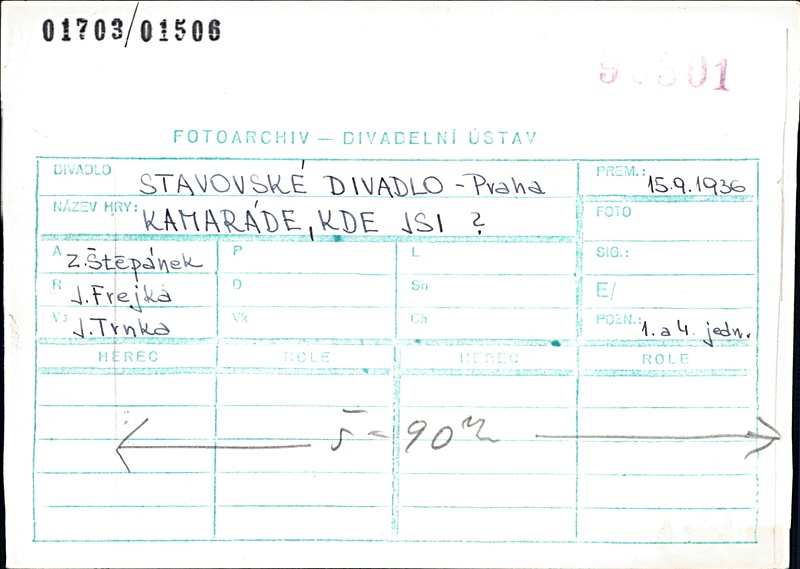 01703/01506
FOTOARCHIV — DIVADELNÍ ÚSTAV
DIVADLO STAVOVSKÉ DIVADLO - Praha PREM.: 15.9.1936
NÁZEV HRY: KAMARÁDE, KDE JSI ? FOTO
A Z. Štěpánek P L SIG.:
R J. Frejka D Sh E/
Vs J. Trnka Vk Ch POZN.: 1. a 4. jedn.
HEREC ROLE HEREC ROLE
90